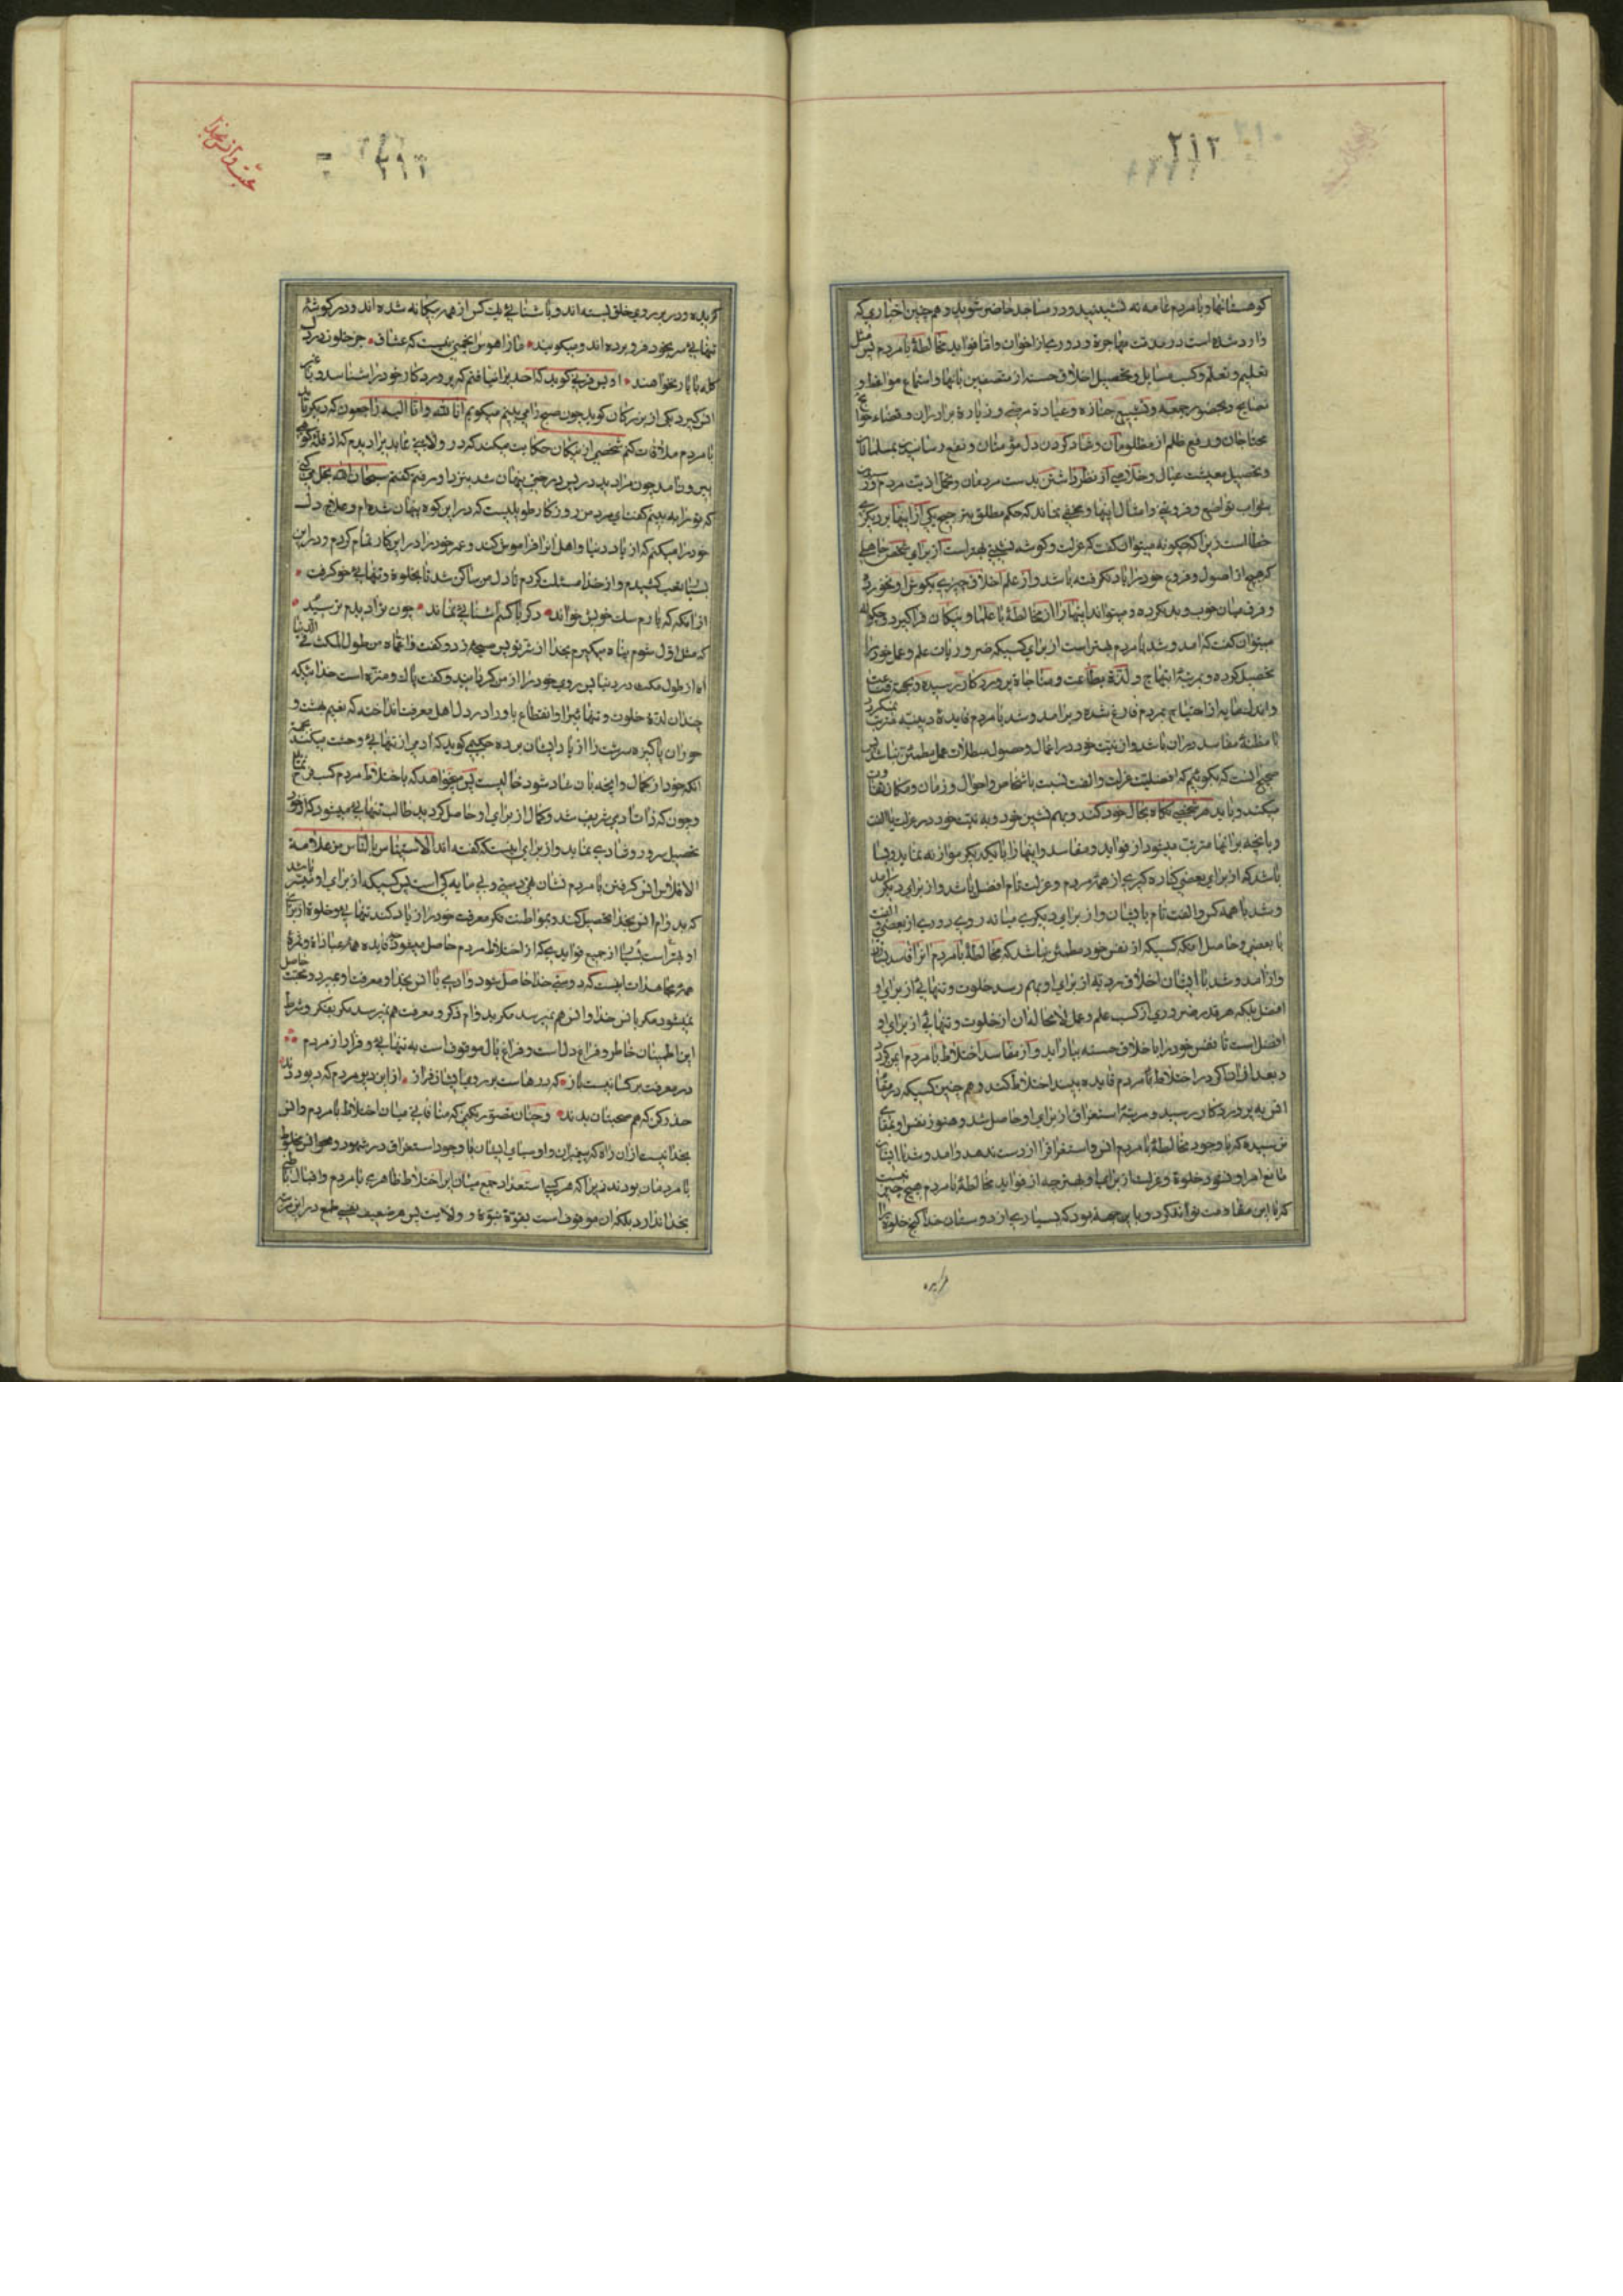 ۲۱۲
کوهستانها و با مردم عامه نه نشینید و در مساجد حاضر شوید و هم چنین اخباری که
وارد شده است در مذمت مهاجرة و دوری از اخوان و اما فواید مخالطهٔ با مردم پس مثل
تعلیم و تعلم و کسب مسایل و تحصیل اخلاق حسنه از متصفین بانها و استماع مواعظ و
نصایح و بحضور جمعه و تشییع جنازه و عیادة مرضی و زیارة برادران و قضاء حوایج
محتاجان و رفع ظلم از مظلومان و شاد کردن دل مؤمنان و نفع رسانیدن بمسلمانان
و تحصیل معیشت عیال و خلاصی از نظر داشتن بدست مردمان و تحمل اذیت مردم و
بثواب تواضع و فروتنی و امثال اینها و مخفی نماند که حکم مطلق بترجیح یکی از اینها بر دیگری
خطا است زیرا که چگونه میتوان گفت که عزلت و گوشه نشینی بهتر است از برای شخص جاهلی
که هیچ از اصول و فروع خود را یاد نگرفته باشد و از علم اخلاق چیزی بگوش او نخورده
و فرق میان خوب و بد نکرده و میتواند اینها را از مخالطهٔ با علما و نیکان فراگیرد و چگونه
میتوان گفت که امد و شد با مردم بهتر است از برای کسیکه ضروریات علم و عمل خود را
تحصیل کرده و بمرتبهٔ ابتهاج و لذة بطاعت و مناجاة پروردگار رسیده و بجهة قناعت
و اندك مایه از احتیاج بمردم فارغ شده و بر امد و شد با مردم فایدهٔ دینیه مترتب نمیگردد
با مظنهٔ مفاسد در ان باشد و از نیت خود در اعمال و حصول مبطلات عمل مطمئن نباشد پس
صحیح انست که بگوئیم که افضلیت عزلت و الفت نسبت باشخاص و احوال و زمان و مکان تفاوت
میکند و باید هر شخصی نگاه بحال خود کند و بهم نشین خود و به نیت خود در عزلت یا الفت
و بانچه بر انها مترتب میشود از فواید و مفاسد و اینها را با یکدیگر موازنه نماید و بسا
باشد که از برای بعضی کناره گیری از همهٔ مردم و عزلت تمام افضل باشد و از برای دیگر امد
و شد با همه کس و الفت تام با ایشان و از برای دیگری میانه روی دوری از بعضی و الفت
با بعضی و حاصل انکه کسیکه از نفس خود مطمئن نباشد که مخالطهٔ با مردم انرا فاسد
و از امد و شد با ایشان اخلاق ردیه از برای او بهم رسد خلوت و تنهائی از برای او
افضل بلکه هر قدر ضروری از کسب علم و عمل لامحاله ان از خلوت و تنهائی از برای او
افضل است تا نفس خود را باخلاق حسنه بیاراید و از مفاسد اختلاط با مردم ایمن گردد
و بعد از ان اگر در اختلاط با مردم فایده بیند اختلاط کند و هم چنین کسیکه در مقام
انس به پروردگار رسید و مرتبهٔ استغراق از برای او حاصل شد و هنوز نفس او بمقامی
نرسیده که با وجود مخالطهٔ با مردم انس و استغراق را از دست ندهد و امد و شد با ایشان
مانع امر او نشود خلوة و عزلت از برای او بهتر چه از فواید مخالطهٔ با مردم هیچ چیز نیست
که با این مقاومت تواند کرد و باین جهة بود که بسیاری از دوستان خدا کنج خلوة را
گزیده
محبت و انس بخدا
گزیده و در بر روی خلق بسته اند و با شنائی یك کس از همه بیگانه شده اند و در گوشهٔ
تنهائی سر بخود فرو برده اند و میگویند ما را هوس انجمنی نیست که عشاق جز خلوت دل
کله با یار نخواهند اویس قرنی گوید که احدیرا نیافتم که پروردگار خود را شناسد و با غیر
انس گیرد یکی از بزرگان گوید چون صبح را می بینم میگویم انا لله و انا الیه راجعون که دیگر باید
با مردم ملاقات کنم شخصی از نیکان حکایت میکند که در ولایتی عابدیرا دیدم که از قلهٔ کوهی
بیرون امد چون مرا دید در پس درختی پنهان شد بنزد او رفتم گفتم سبحان الله بخل میکنی
که تو را به بینم گفت ای مرد من روزگار طویلیست که در این کوه پنهان شده ام و علاج دل
خود را میکنم که از یاد دنیا و اهل انرا فراموش کند و عمر خود را در این کار تمام کردم و در این
بسیار تعب کشیدم و از خدا مسئلت کردم تا دل من ساکن شد تا بخلوة و تنهائی خو گرفت
از انکه که یارم سك خویش خواند دگر با کسم اشنائی نماند چون ترا دیدم ترسید
که مثل اول شوم پناه میگیرم بخدا از شر تو پس صیحهٔ زد و گفت واغماه من طول المکث فی الدنیا
اه از طول مکث در دنیا پس روی خود را از من گردانید و گفت پاك و منزه است خدائیکه
چندان لذة خلوت و تنهائی را و انقطاع باو را در دل اهل معرفت انداخته که نعیم بهشت و
حوران پاکیزه سرشت را از یاد ایشان برده حکیمی گوید که ادمی از تنهائی وحشت میکند بجهة
انکه خود از کمال و انچه بان شاد شود خالیست پس میخواهد که باختلاط مردم کسب فرح نماید
و چون که ذات ادمی شریف شد و کمال از برای او حاصل گردید طالب تنهائی میشود که از خود
تحصیل سرور و شادی نماید و از برای اینستکه گفته اند الاستیناس بالناس من علامة
الافلاس انس گرفتن با مردم نشان تهی دستی و بی مایه گی است پس کسیکه از برای او میسر باشد
که بدوام انس بخدا تحصیل کند و بمواظبت فکر معرفت خود را زیاد کند تنهائی و خلوة از برای
او بهتر است بسیار از جمیع فوایدی که از اختلاط مردم حاصل میشود فایده همهٔ عباداة و ثمرهٔ
همهٔ مجاهدات اینست که دوستی خدا حاصل شود و ادمی با انس بخدا و معرفت او بمیرد و محبت حاصل
نمیشود مگر بانس خدا و انس هم نمیرسد مگر بدوام ذکر و معرفت هم نمیرسد مگر بفکر و شرط
این اطمینان خاطر و فراغ دل است و فراغ بال موقوفست به تنهائی و فرار از مردم
در معرفت بر کسانیست باز که درهاست بر روی ایشان فراز از این دیو مردم که دیو و ددند
حذر کن که هم صحبتان بدند و چنان تصور نکنی که منافاتی میان اختلاط با مردم و انس
بخدا نیست از ان راه که پیغمبران و اوصیای ایشان با وجود استغراق در شهود و محو انس مخلوط
با مردمان بودند زیرا که هر کسی استعداد جمع میان این اختلاط ظاهری با مردم و اقبال باطنی
بخدا ندارد بلکه ان موقوفست بقوة نبوة و ولایت پس هر ضعیف نفسی طمع در این مرتبه